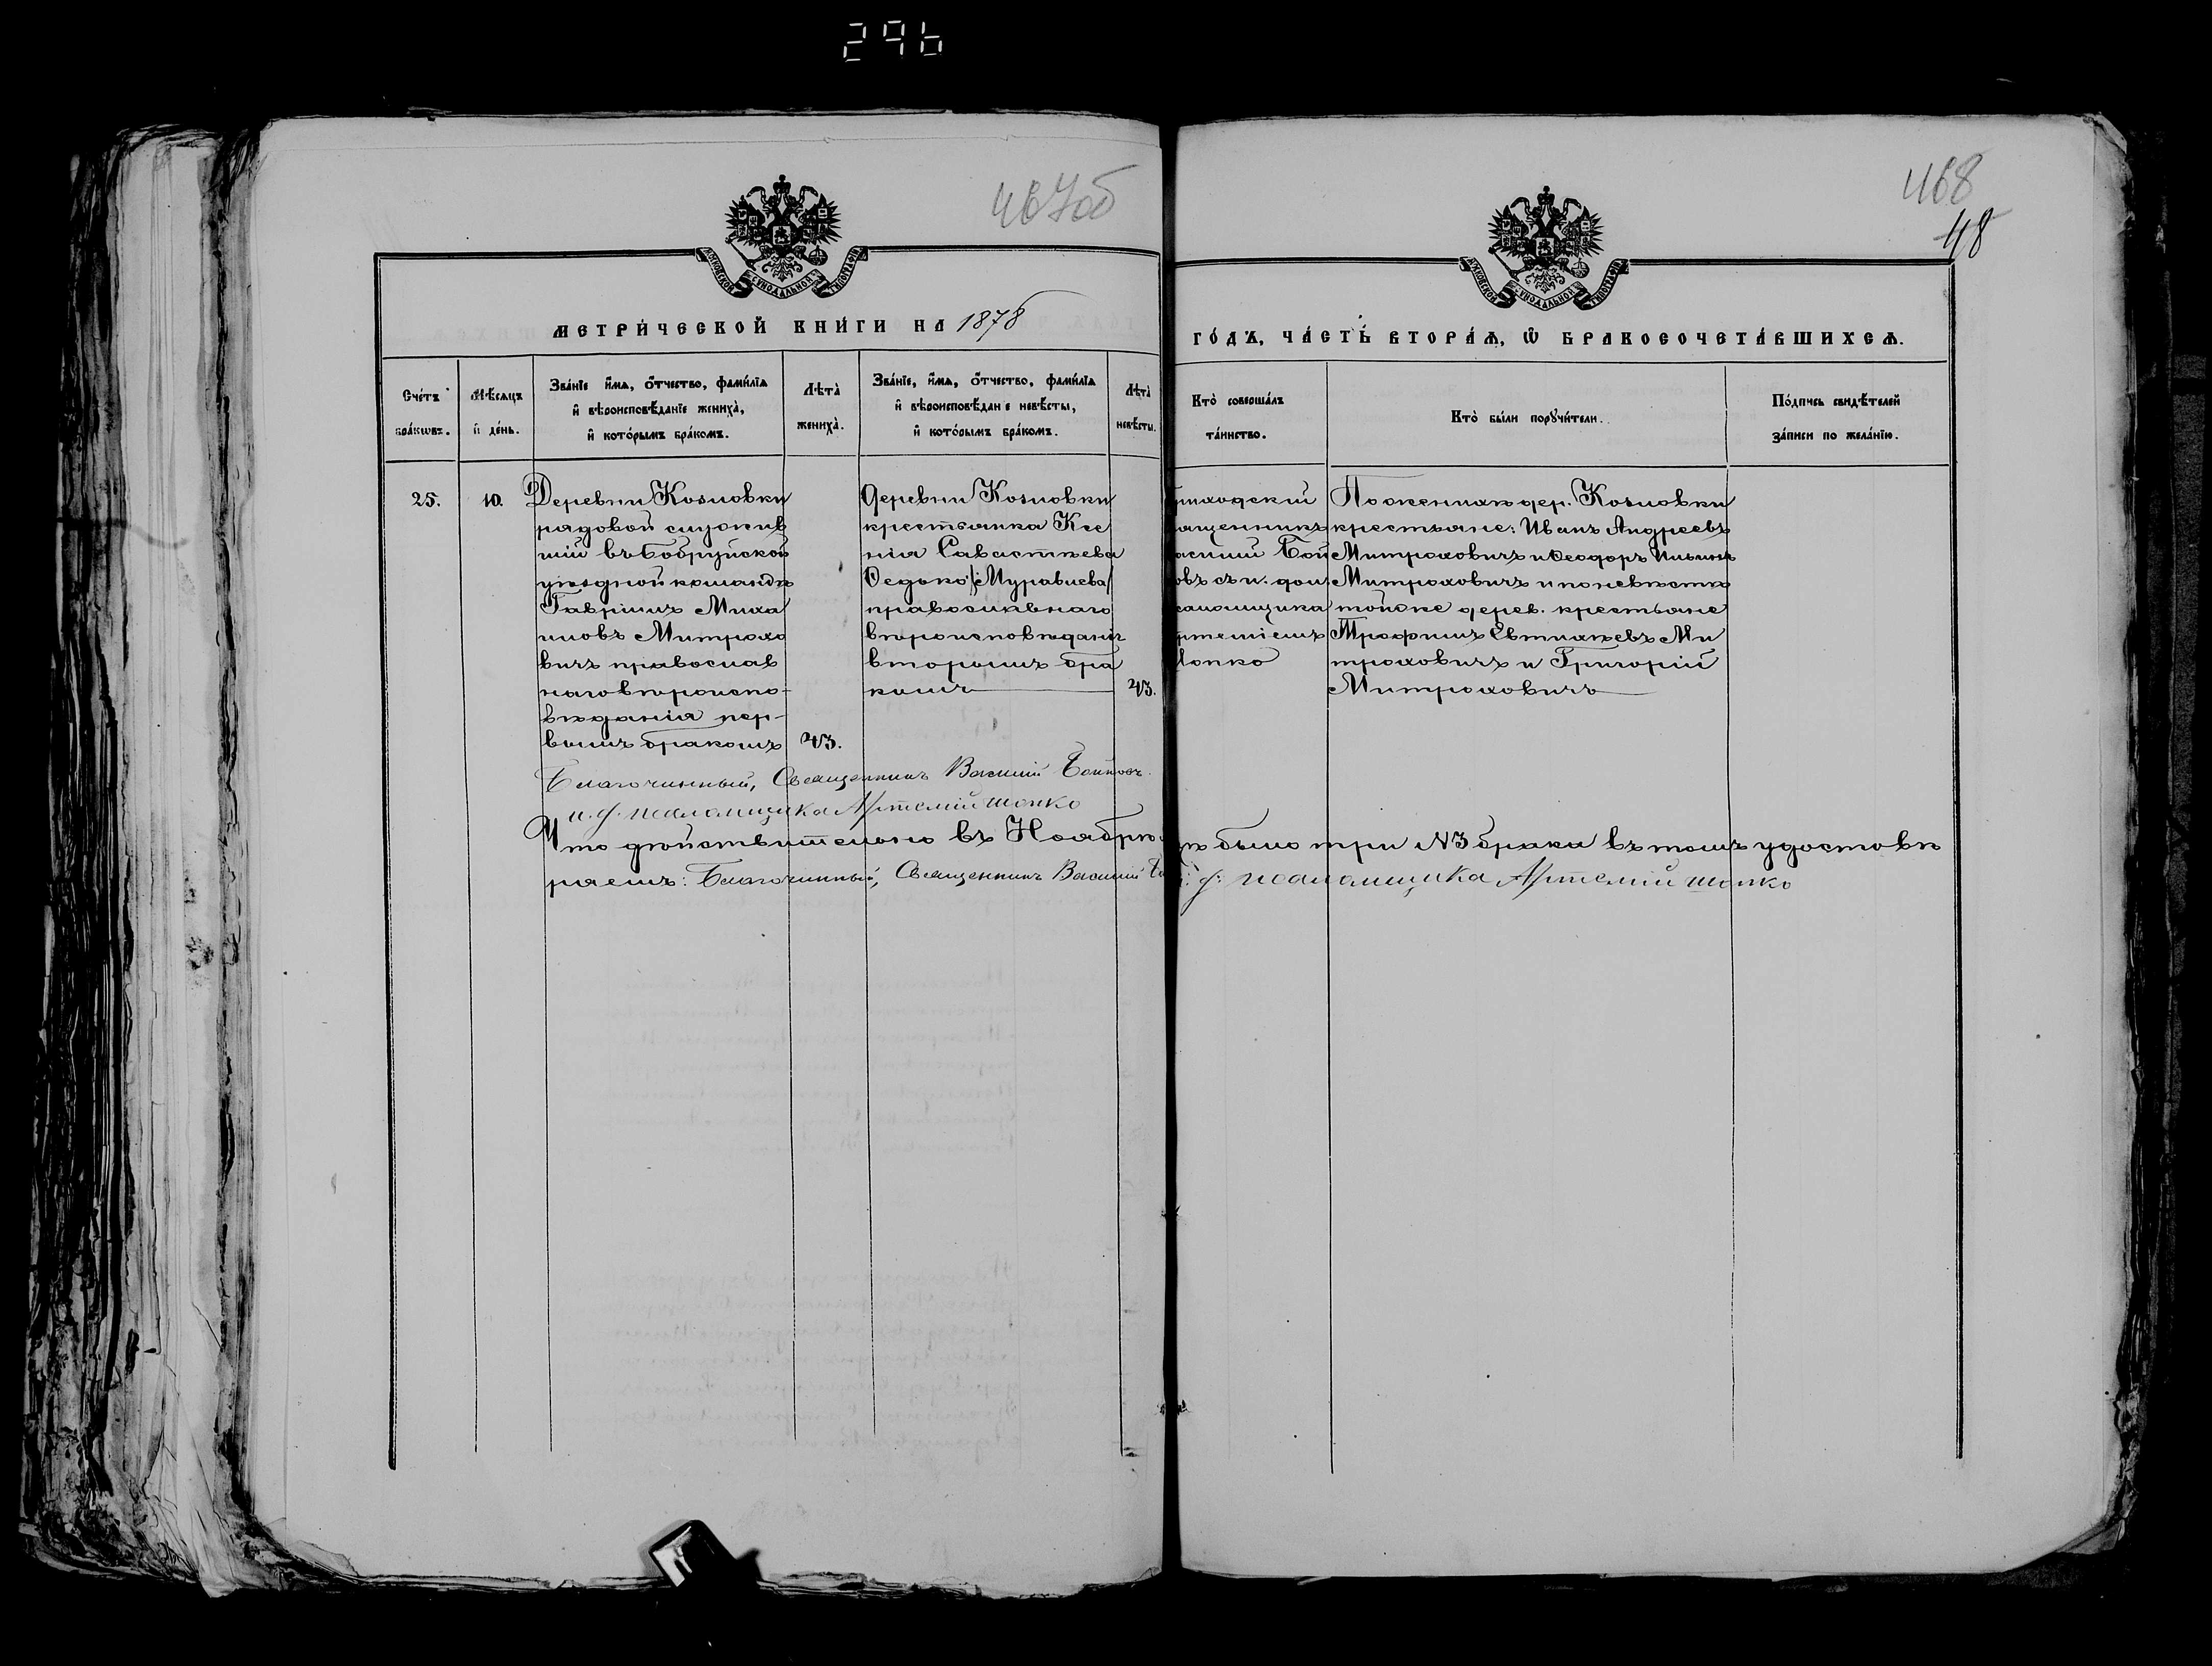 296
467об
468
48
МОСКОВСКОЙ СѴНОДАЛЬНОЙ ТИПОГРАФІИ
МОСКОВСКОЙ СѴНОДАЛЬНОЙ ТИПОГРАФІИ
МЕТРИ́ЧЕСКОЙ КНИ́ГИ НА 1878
ГО́ДЪ, ЧА́СТЬ ВТОРА́Ѧ, Ѽ БРАКОСОЧЕТА́ВШИХСѦ.
Сче́тъ
бра́кѡвъ.
Мѣ́сѧцъ
и҆ де́нь.
Зва́нїе и҆́мѧ, ѻ҆́тчество, фами́лїѧ
и҆ вѣроисповѣ́данїе жениха̀,
и҆ кото́рымъ бра́комъ.
Лѣ́та̀
жениха̀.
Зва́нїе, и҆́мѧ, ѻ҆́тчество, фами́лїѧ
и҆ вѣроисповѣ́данїе невѣ́сты,
и҆ кото́рымъ бра́комъ.
Лѣ́та̀
невѣ́сты.
Кто̀ соверша́лъ
та́инство.
Кто̀ бы́ли порꙋчи́тели.
По́дпись свидѣ́телей
за́писи по жела́нїю.
25.
10.
Деревни Козловки
рядовой служив
шій въ Бобруйской
уѣздной командѣ
Гавріилъ Миха
иловъ Митрахо
вичъ православ
наго вѣроиспо-
вѣданія пер-
вымъ бракомъ
43.
деревни Козловки
крестьянка Ксе
нія Савастѣева
Ѳедько /Муравьева/
православнаго
вѣроисповѣданія
вторымъ бра
комъ
43.
приходскій
священникъ
Василій Бой
овъ съ и. дол.
псаломщика
Артеміемъ
Шопко
По женихѣ дер. Козловки
крестьяне: Иванъ Андреевъ
Митроховичъ и Ѳеодоръ Ильинъ
Митроховичъ и по невѣстѣ
той же дерев. крестьяне
Трофимъ Евтихѣевъ Ми
троховичъ и Григорій
Митроховичъ
Благочинный, Священникъ Василій Бойковъ.
и. д. псаломщика Артемій Шопко
Что дѣйствительно въ Ноябрѣ
было три №3 брака въ томъ удостовѣ
ряемъ: Благочинный, Священникъ Василій
и. д. псаломщика Артемій Шопко